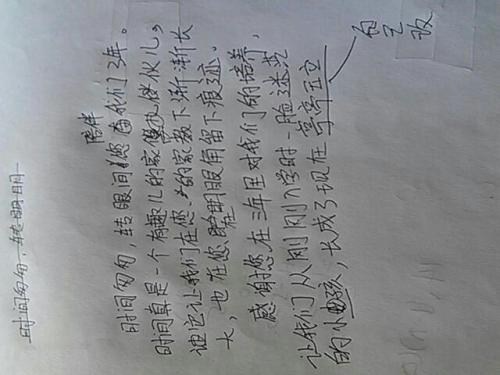 时间匆匆,转眼间
陪伴
时间匆匆,转眼间您在我们3年。
时间真是一个有趣儿的家伙儿,
让我们在您的家教下渐渐长
大,也在您眼角留下痕迹。
感谢您在三年里对我们的培养,
让我们从刚刚入学时一脸迷茫
的小孩,长成了现在亭亭玉立
自己改